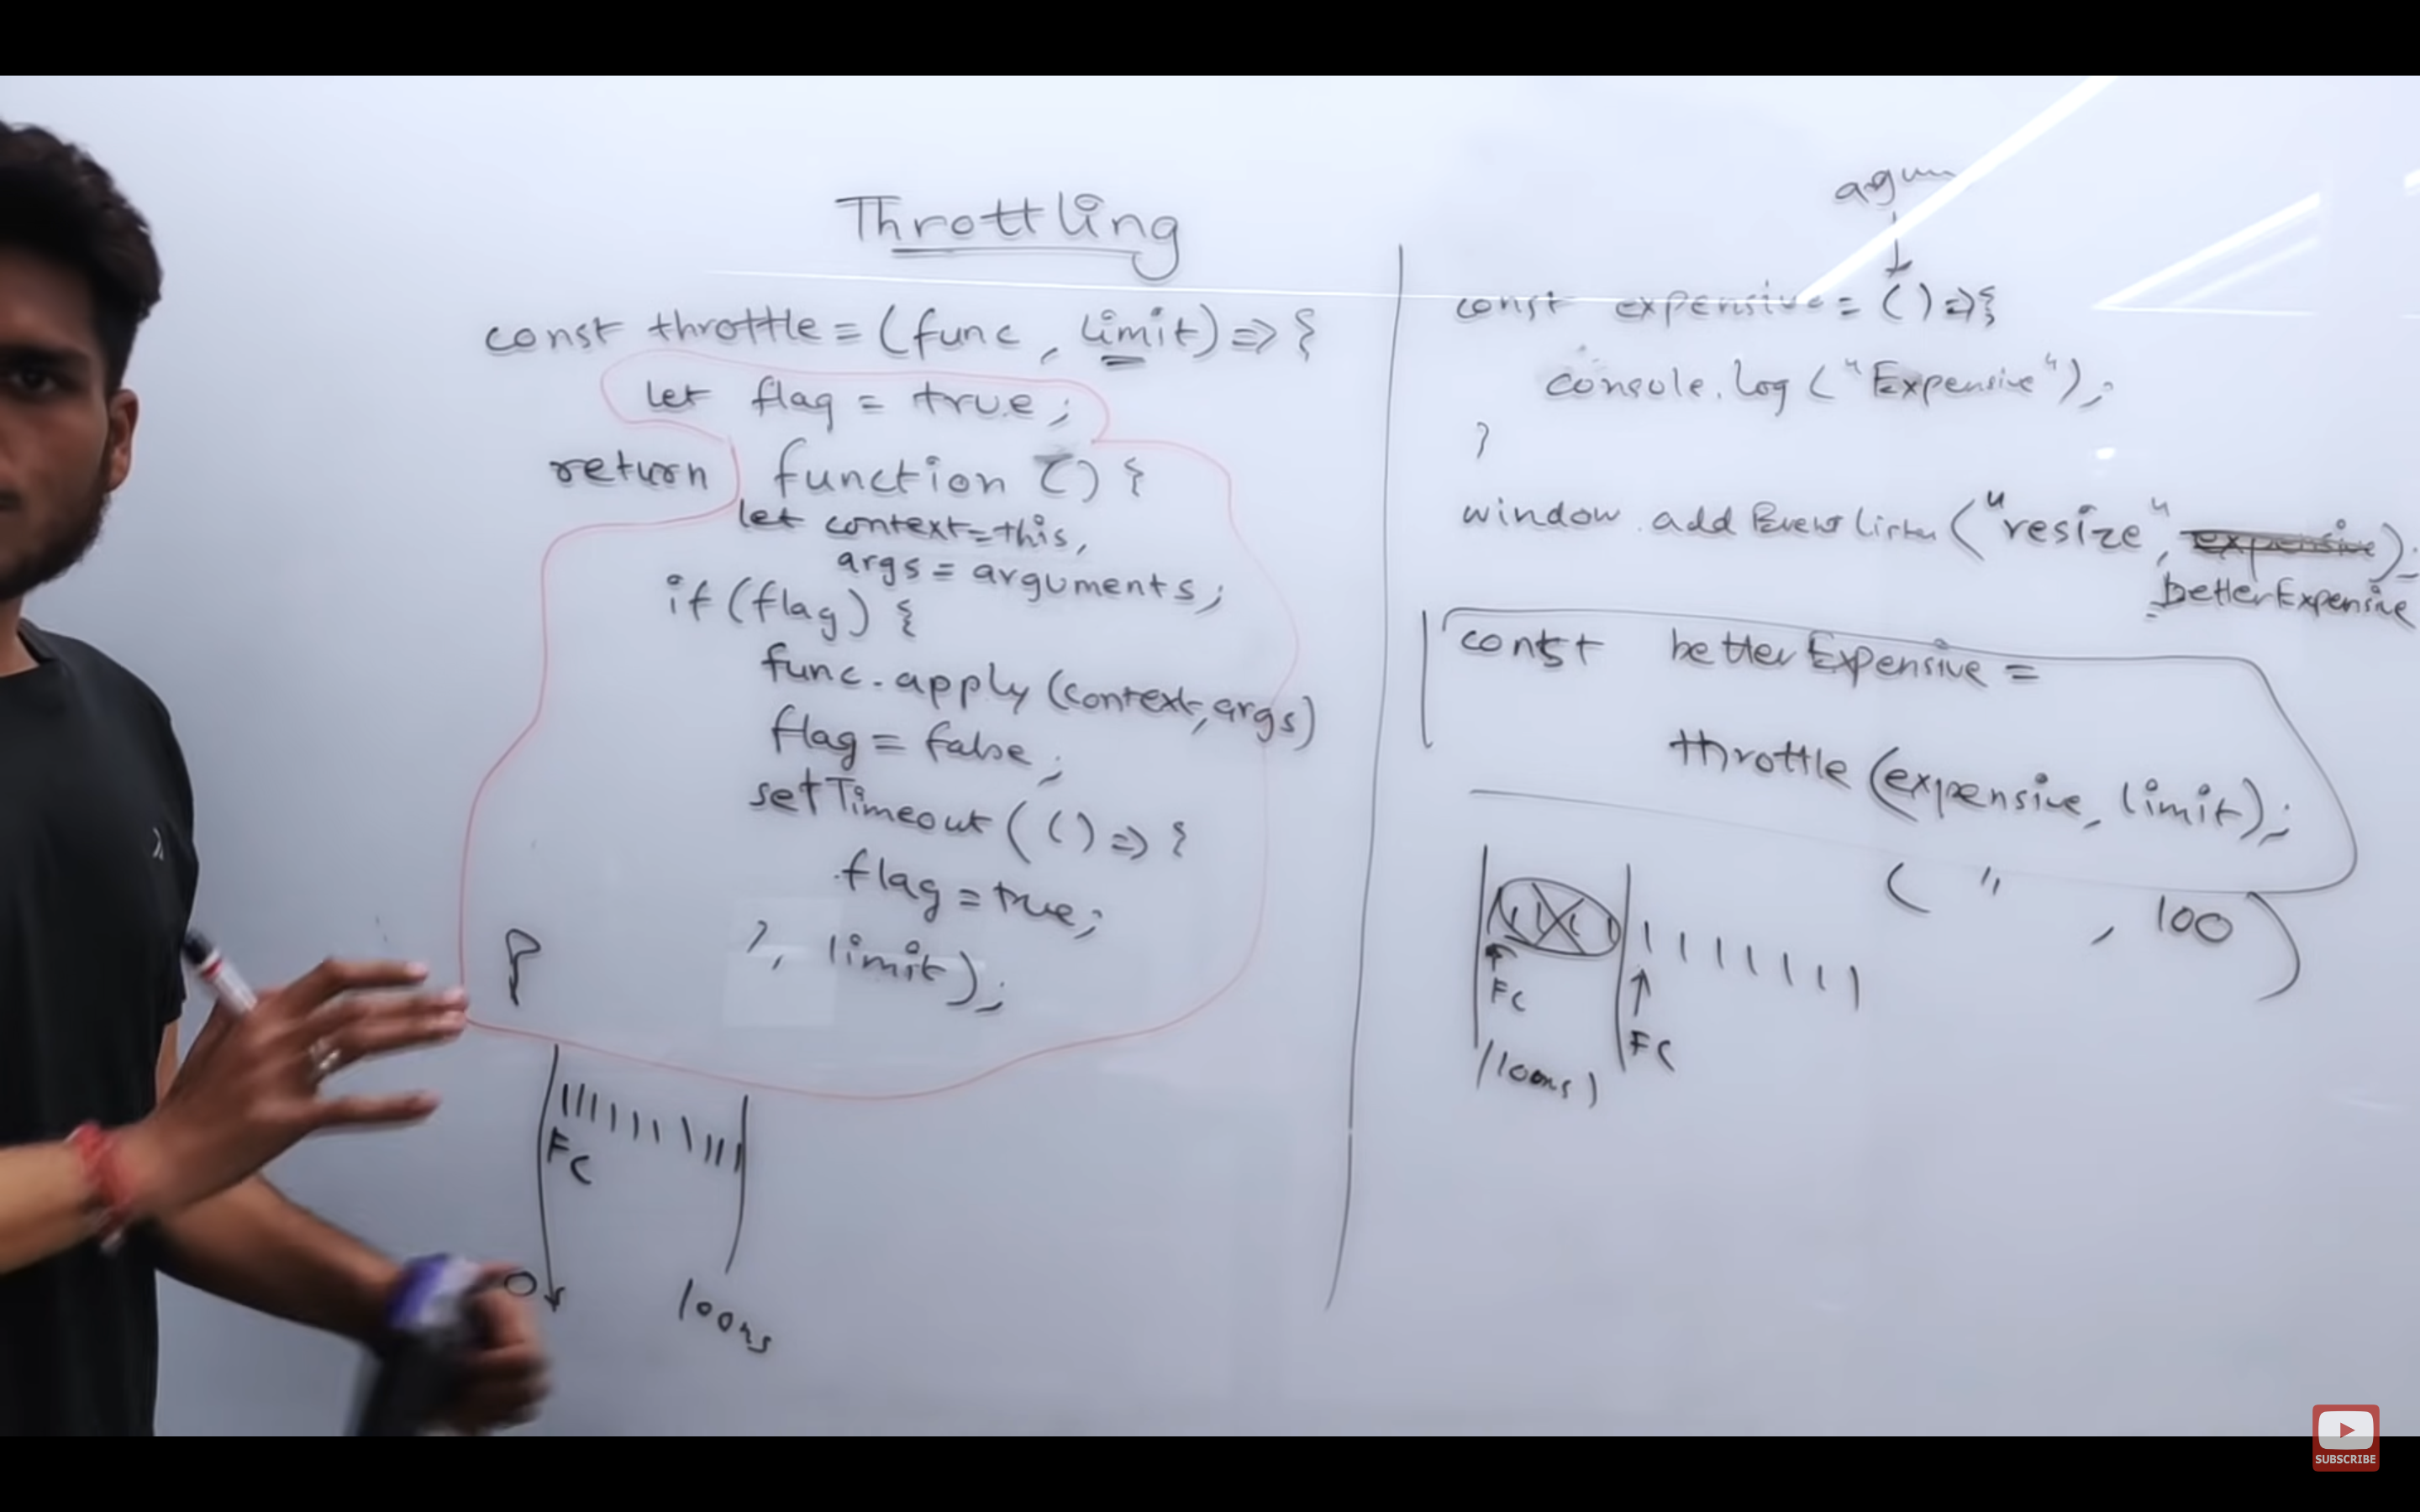 Throttling
const throttle = (func, limit) => {
let flag = true;
return function () {
let context = this,
args = arguments;
if (flag) {
func.apply(context, args)
flag = false;
setTimeout(() => {
flag = true;
}, limit);
}
FC
0
100ms
const expensive = () => {
console.log("Expensive");
}
window.addEventListen("resize", expensive);
betterExpensive
const betterExpensive =
throttle(expensive, limit);
( " , 100)
FC
FC
100ms
SUBSCRIBE